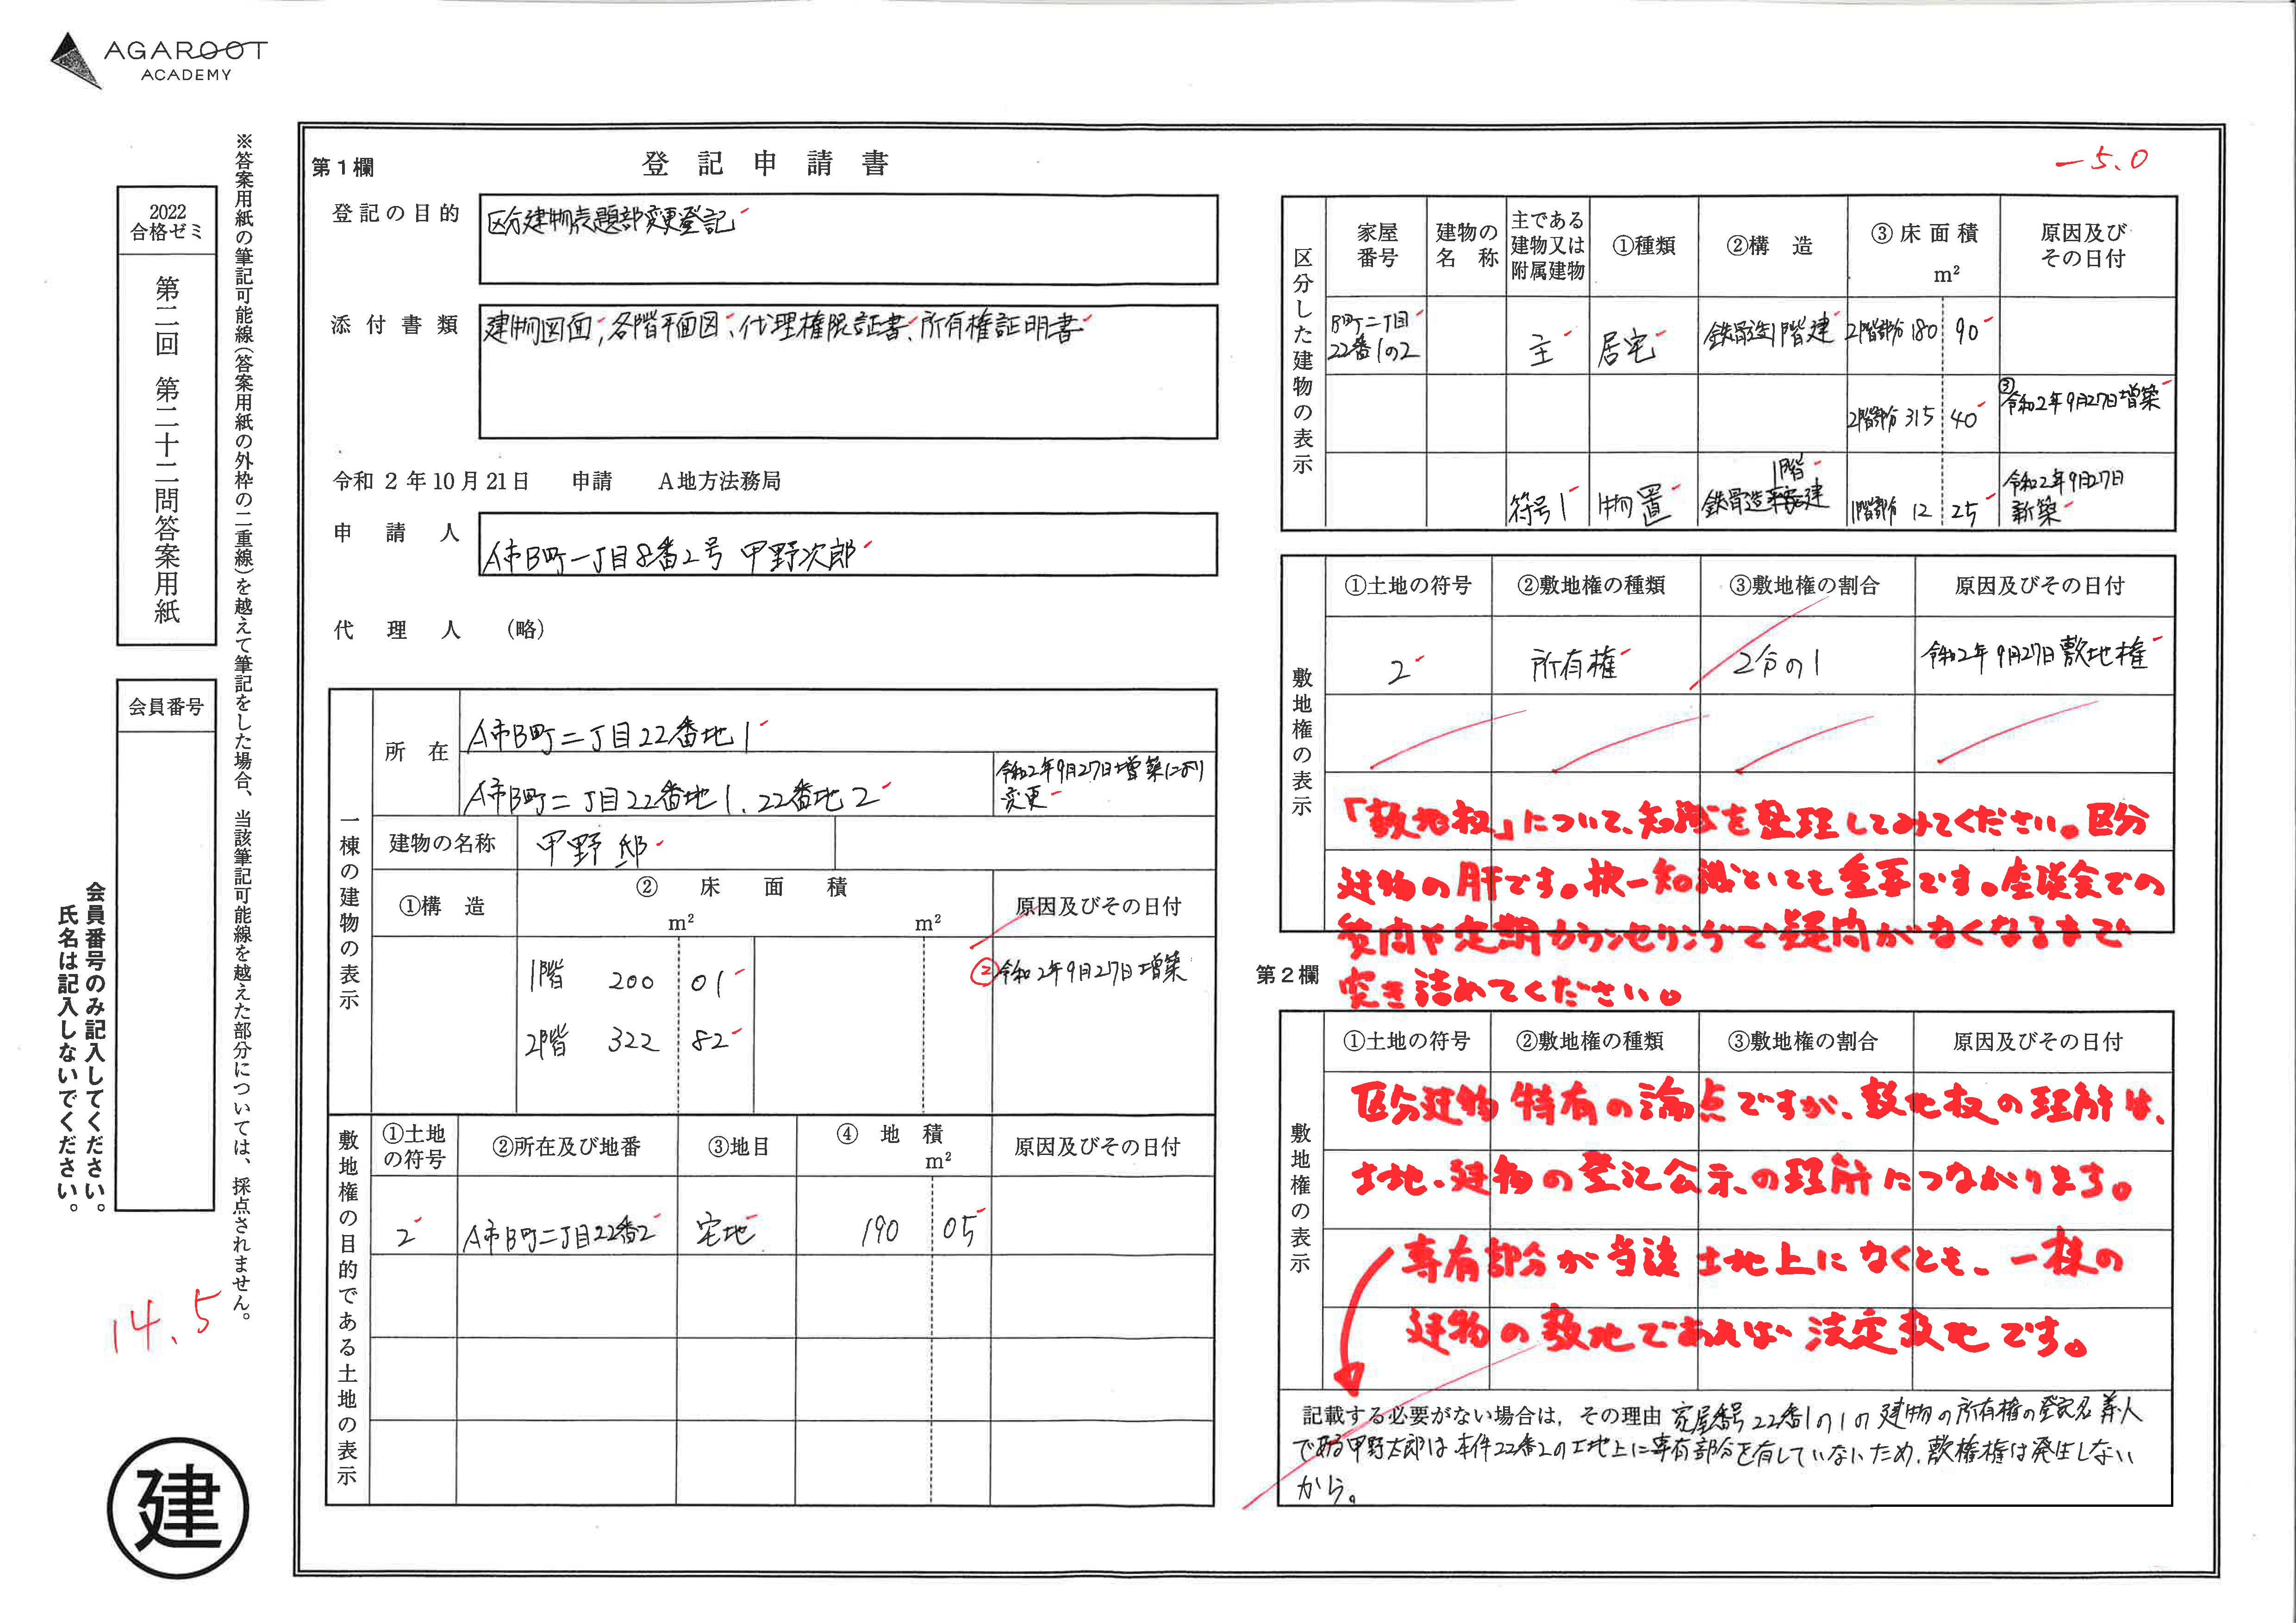 AGAROOT
ACADEMY
2022
合格ゼミ
第二回 第二十二問答案用紙
※答案用紙の筆記可能線(答案用紙の外枠の二重線)を越えて筆記をした場合、当該筆記可能線を越えた部分については、採点されません。
会員番号
会員番号のみ記入してください。
氏名は記入しないでください。
14.5
建
第1欄
登記申請書
登記の目的
区分建物表題部変更登記
添付書類
建物図面、各階平面図、代理権限証書、所有権証明書
令和 2 年 10 月 21 日 申請 A 地方法務局
申請人
A市B町一丁目8番2号 甲野次郎
代理人 (略)
一棟の建物の表示
所在
A市B町二丁目22番地1
A市B町二丁目22番地1、22番地2
令和2年9月27日増築により
変更
建物の名称
甲野邸
①構造
② 床面積
m²
m²
原因及びその日付
1階 200 01
②令和2年9月27日増築
2階 322 82
敷地権の目的である土地の表示
①土地の符号
②所在及び地番
③地目
④ 地積
m²
原因及びその日付
2 A市B町二丁目22番2 宅地 190 05
-5.0
区分した建物の表示
家屋番号
建物の名称
主である建物又は附属建物
①種類
②構造
③床面積
m²
原因及びその日付
B町二丁目
22番1の2
主 居宅 鉄骨造1階建 2階部分 180 90
2階部分 315 40
③令和2年9月27日増築
符号1 物置 鉄骨造1階建 1階部分 12 25
令和2年9月27日
新築
敷地権の表示
①土地の符号
②敷地権の種類
③敷地権の割合
原因及びその日付
2 所有権 2分の1 令和2年9月27日敷地権
「敷地权」について、知識を整理してみてください。区分
建物の肝です。択一知識としても重要です。座談会での
質問や定期カウンセリングで疑問がなくなるまで
突き詰めてください。
第2欄
敷地権の表示
①土地の符号
②敷地権の種類
③敷地権の割合
原因及びその日付
区分建物特有の論点ですが、敷地权の理解は、
土地、建物の登記公示、の理解につながります。
専有部分が当該土地上になくとも、一棟の
建物の敷地であれば法定敷地です。
記載する必要がない場合は，その理由 家屋番号22番1の1の建物の所有権の登記名義人
である甲野太郎は本件22番2の土地上に専有部分を有していないため、敷権権は発生しない
から。